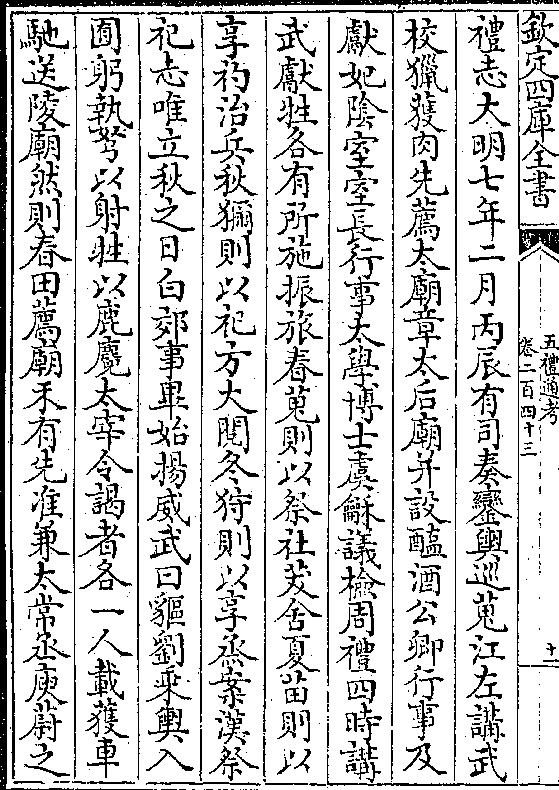 欽定四庫全書
五禮通考
卷二百四十三
十一
禮志大明七年二月丙辰有司奏鑾輿巡蒐江左講武
校獵獲肉先薦太廟章太后廟并設醢酒公卿行事及
獻妃陰室室長行事太學博士虞龢議檢周禮四時講
武獻牲各有所施振旅春蒐則以祭社茇舍夏苗則以
享礿治兵秋獮則以祀方大閱冬狩則以享烝案漢祭
祀志唯立秋之日白郊事畢始揚威武曰貙劉乘輿入
囿躬執弩以射牲以鹿麑太宰令謁者各一人載獲車
馳送陵廟然則春田薦廟未有先准兼太常丞庾蔚之